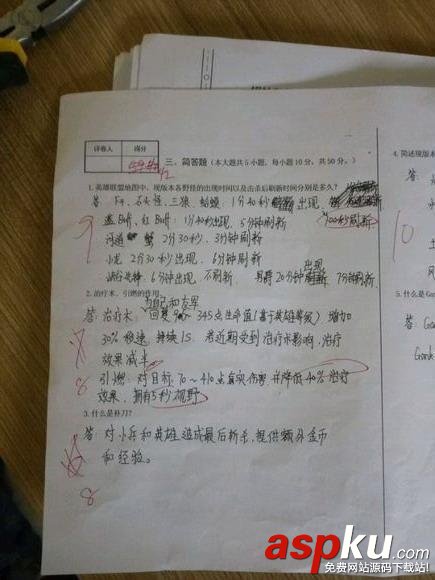 评卷人 得分
三、简答题（本大题共5小题，每小题10分，共50分。）
1. 英雄联盟地图中，现版本各野怪的出现时间以及击杀后刷新时间分别是多久？
答：F4、石头怪、三狼、蛤蟆：1分40秒 出现，
100秒刷新
蓝Buff、红Buff：1分40秒出现，5分钟刷新
河道蟹 2分30秒，3分钟刷新
小龙 2分30秒出现，6分钟刷新
峡谷先锋：6分钟出现 不刷新 20分钟 出现 7分钟刷新
9
2. 治疗术、引燃的作用
与自己和友军
答：治疗术：回复90～345点生命值(基于英雄等级) 增加
30%移速，持续1S。若近期受到治疗术影响，治疗
效果减半
引燃：对目标70～410点真实伤害并降低40%治疗
效果，拥有5秒视野
8
3. 什么是补刀？
答：对小兵和英雄造成最后斩杀，提供额外金币
和经验。
8
4. 简述现版本
答：
10
5. 什么是Ga
答：Gan
Gank
aspku.com
免费网站源码下载站!